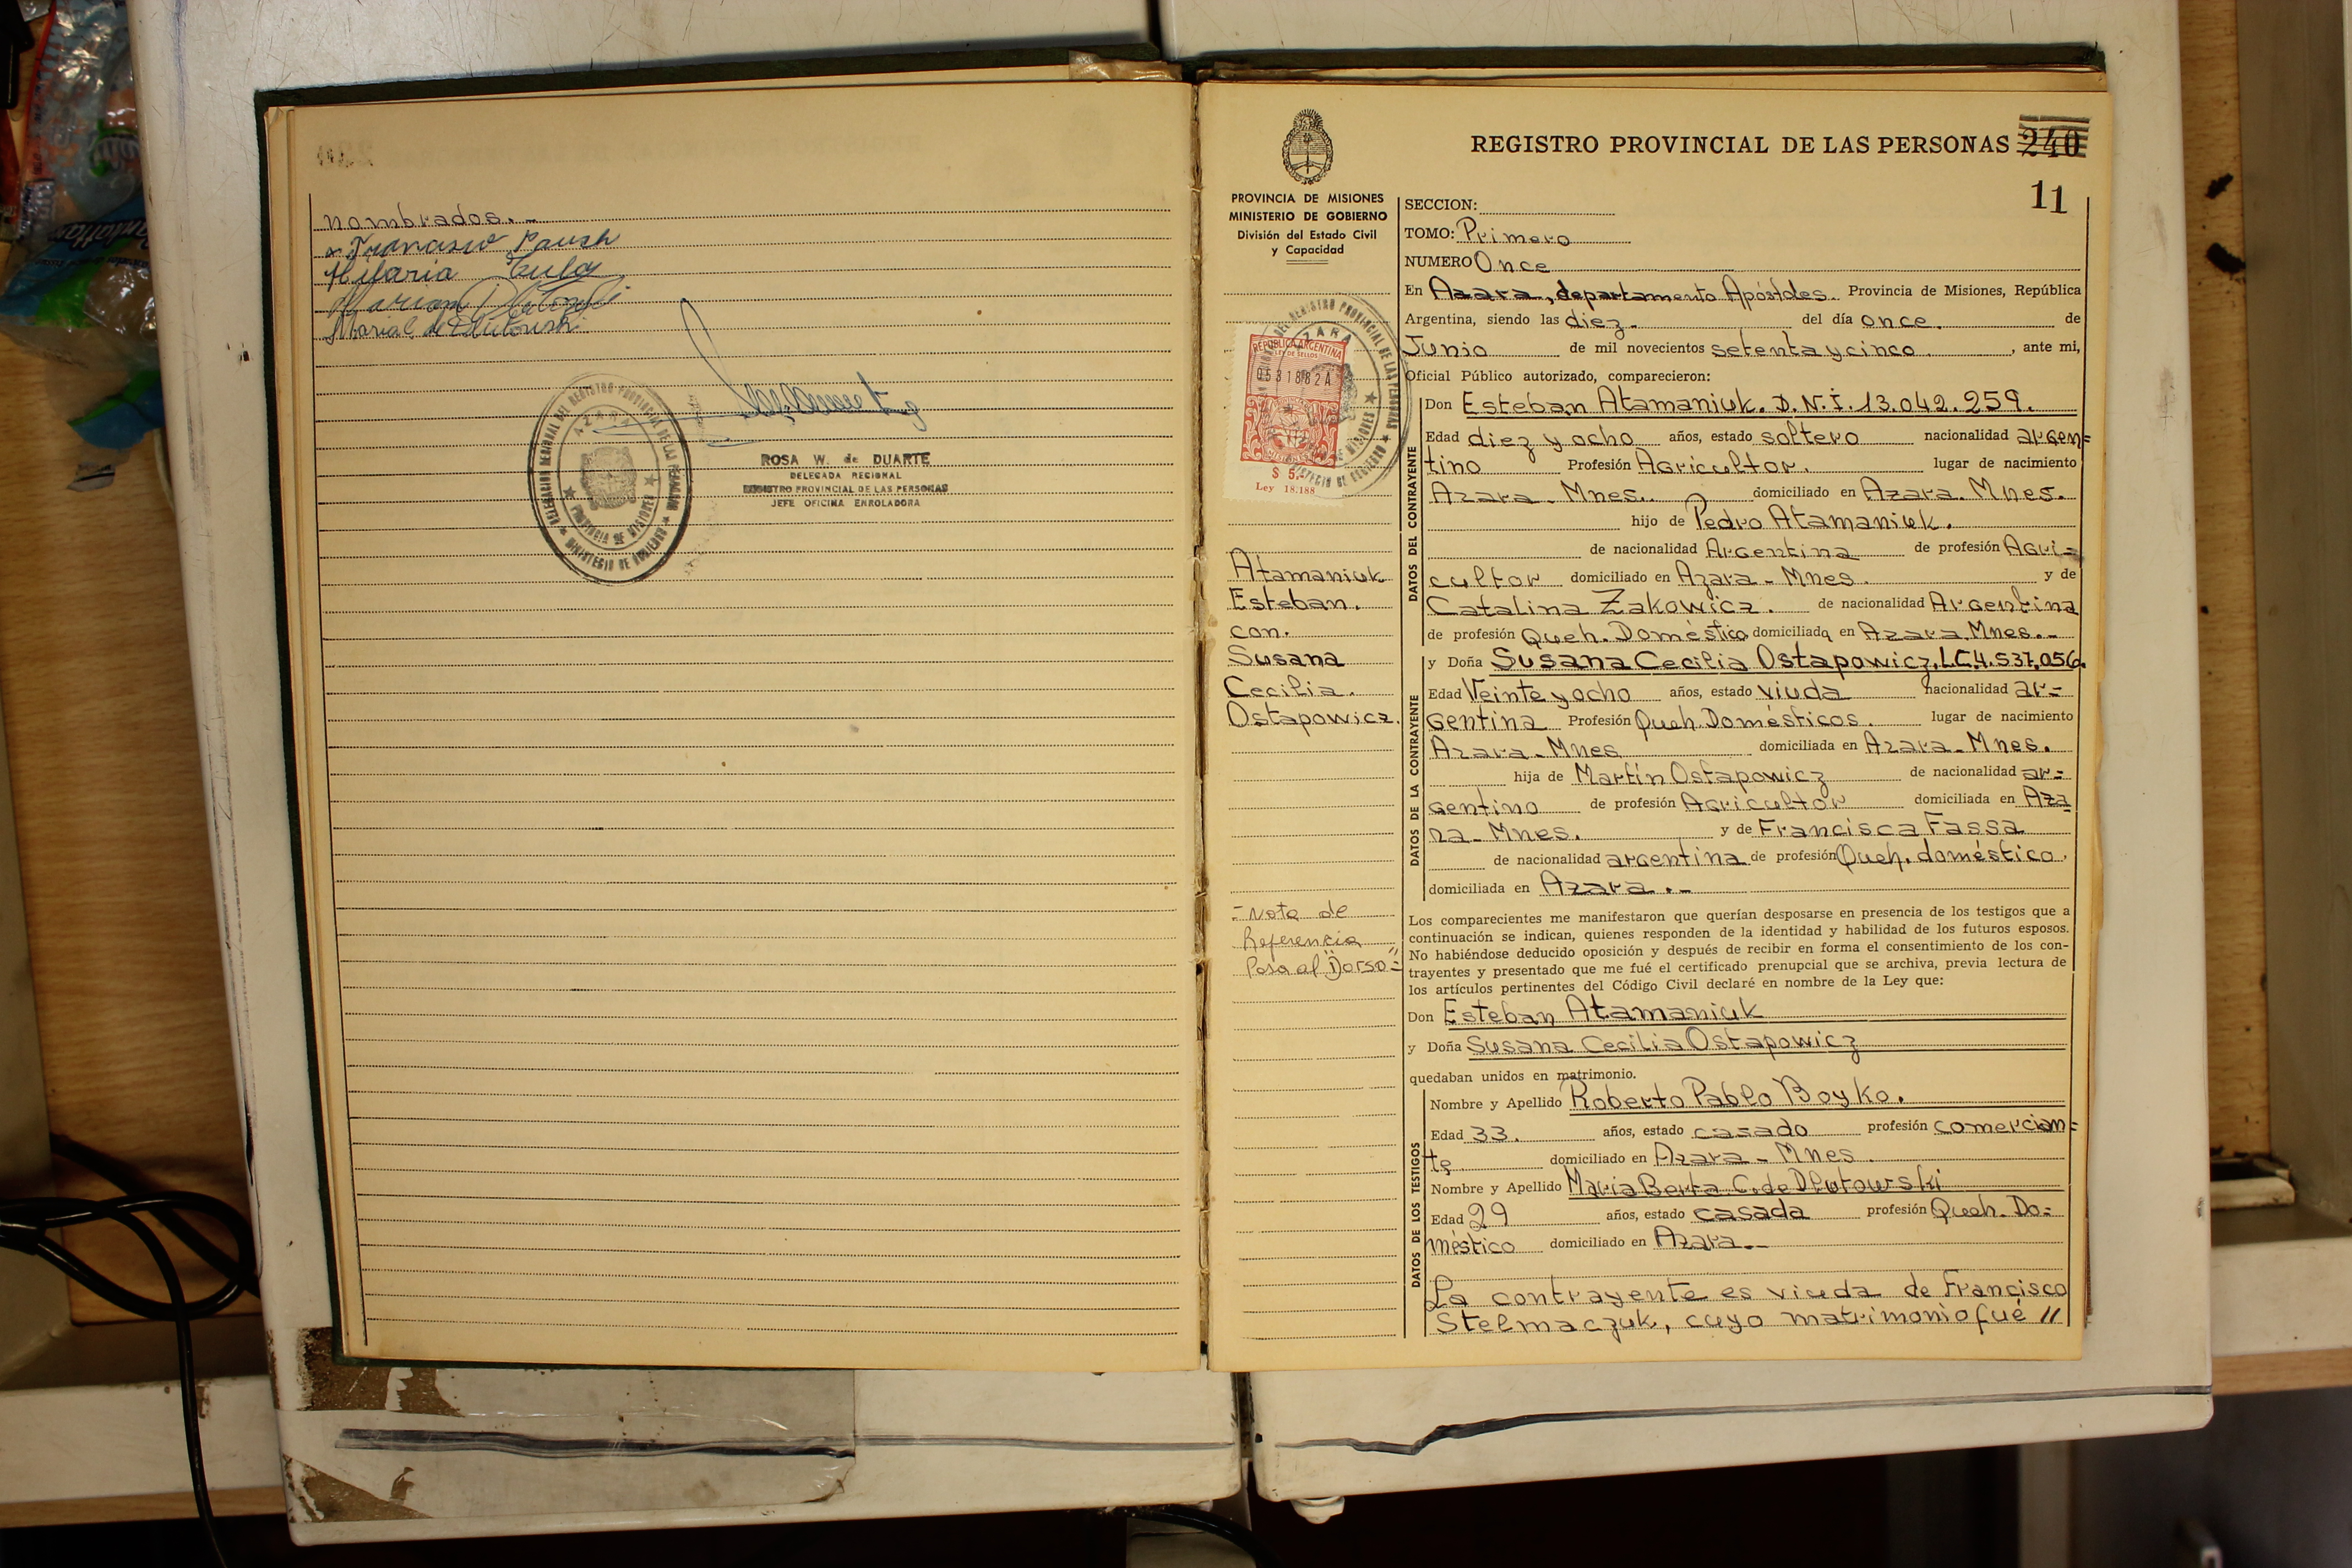 nombrados.-
Francisco Paush
Hilaria
Maria C. de Dlutowski
DELEGACION REGIONAL DEL REGISTRO PROVINCIAL DE LAS PERSONAS
AZARA
PROVINCIA DE MISIONES
MINISTERIO DE GOBIERNO
ROSA W. de DUARTE
DELEGADA REGIONAL
REGISTRO PROVINCIAL DE LAS PERSONAS
JEFE OFICINA ENROLADORA
REGISTRO PROVINCIAL DE LAS PERSONAS 240
11
PROVINCIA DE MISIONES
MINISTERIO DE GOBIERNO
División del Estado Civil
y Capacidad
REPUBLICA ARGENTINA
LEY DE SELLOS
0531882A
$ 5,-
Ley 18.188
Atamaniuk
Esteban.
con.
Susana
Cecilia.
Ostapowicz.
-Nota de
Referencia
Pasa al "Dorso"=
SECCION:
TOMO: Primero
NUMERO Once
En Azara, departamento Apóstoles. Provincia de Misiones, República
Argentina, siendo las diez. del día once. de
Junio de mil novecientos setenta y cinco. , ante mi,
Oficial Público autorizado, comparecieron:
DATOS DEL CONTRAYENTE
Don Esteban Atamaniuk. D.N.I. 13.042.259.
Edad diez y ocho años, estado soltero nacionalidad argen=
tino Profesión Agricultor. lugar de nacimiento
Azara - Mnes. domiciliado en Azara. Mnes.
hijo de Pedro Atamaniuk.
de nacionalidad Argentina de profesión Agri=
cultor domiciliado en Azara - Mnes. y de
Catalina Zakowicz. de nacionalidad Argentina
de profesión Queh. Doméstico domiciliada en Azara Mnes.-
DATOS DE LA CONTRAYENTE
y Doña Susana Cecilia Ostapowicz, L.C. 4.537.056.
Edad Veinte y ocho años, estado viuda nacionalidad ar=
gentina Profesión Queh. Domésticos. lugar de nacimiento
Azara - Mnes domiciliada en Azara - Mnes.
hija de Martín Ostapowicz de nacionalidad ar=
gentino de profesión Agricultor domiciliada en Aza
ra - Mnes. y de Francisca Fassa
de nacionalidad argentina de profesión Queh. doméstico.
domiciliada en Azara.-
Los comparecientes me manifestaron que querían desposarse en presencia de los testigos que a
continuación se indican, quienes responden de la identidad y habilidad de los futuros esposos.
No habiéndose deducido oposición y después de recibir en forma el consentimiento de los con-
trayentes y presentado que me fué el certificado prenupcial que se archiva, previa lectura de
los artículos pertinentes del Código Civil declaré en nombre de la Ley que:
Don Esteban Atamaniuk
y Doña Susana Cecilia Ostapowicz
quedaban unidos en matrimonio.
DATOS DE LOS TESTIGOS
Nombre y Apellido Roberto Pablo Boyko.
Edad 33. años, estado casado profesión comercian=
te domiciliado en Azara - Mnes.
Nombre y Apellido Maria Berta C. de Dlutowski
Edad 29 años, estado casada profesión Queh. Do=
méstico domiciliado en Azara.-
La contrayente es viuda de Francisco
Stelmaczuk, cuyo matrimonio fué //